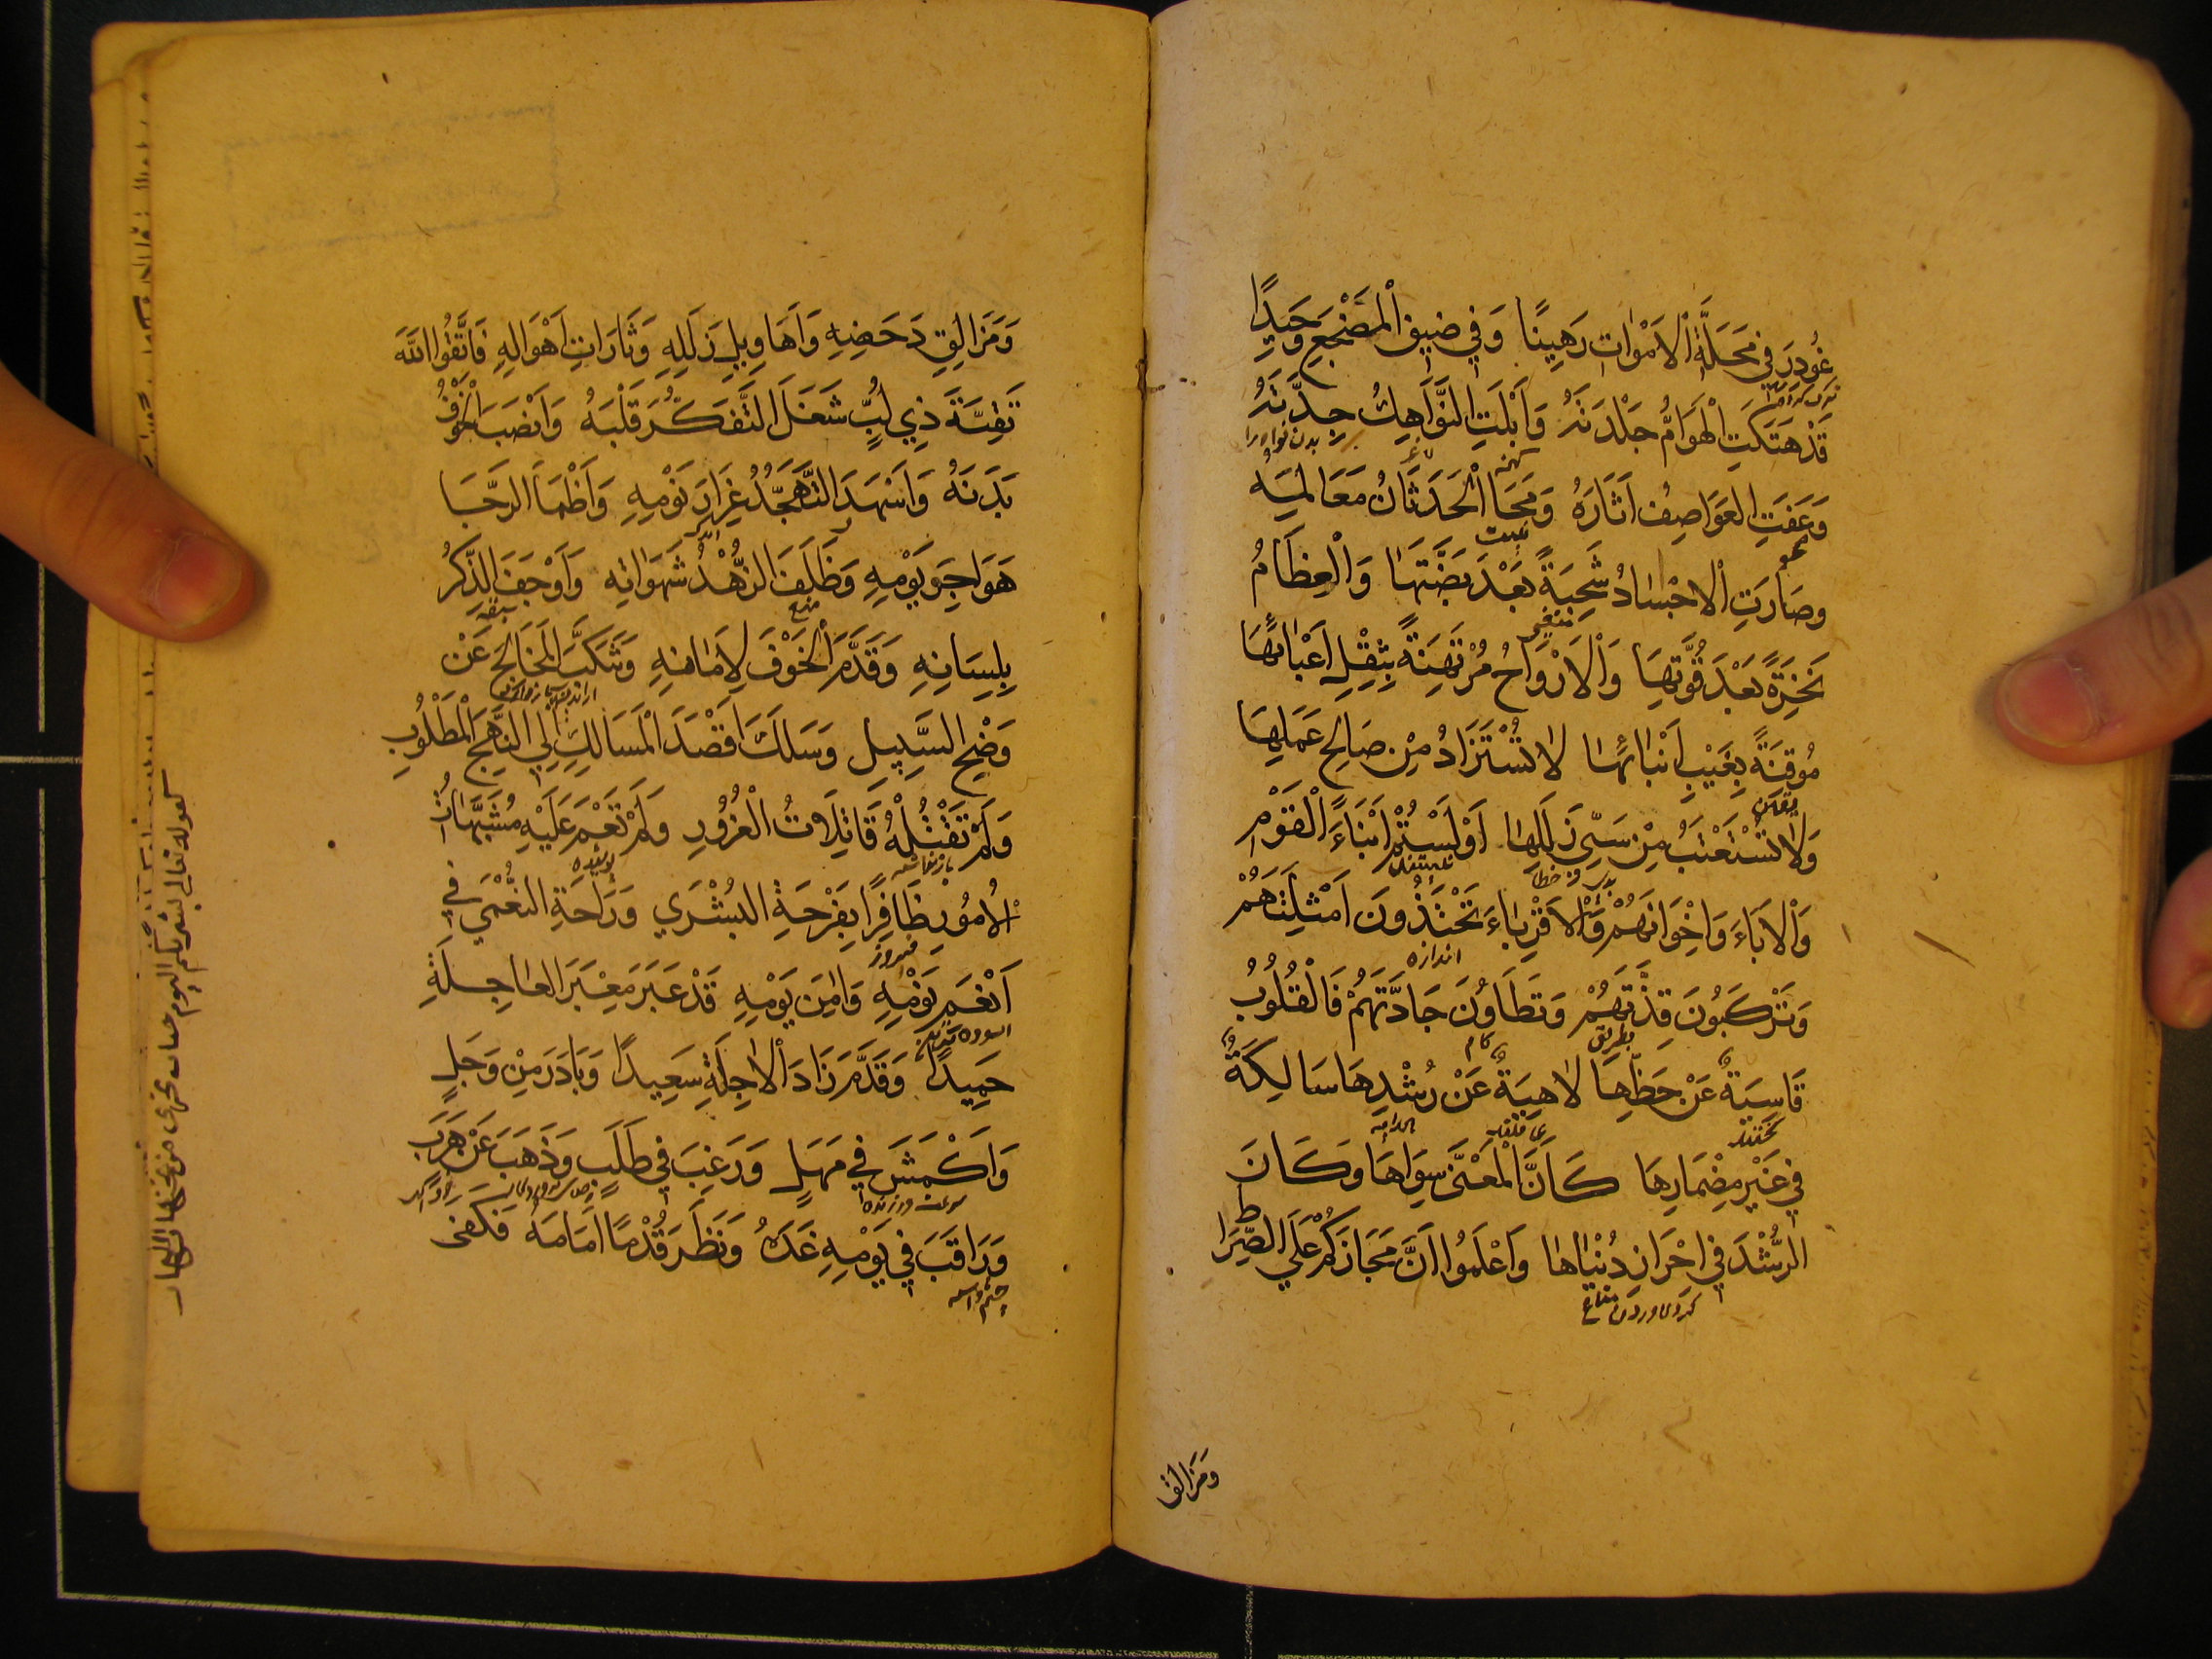 غُودِرَ فِي مَحَلَّةِ الْأَمْوَاتِ رَهِينًا وَفِي ضِيقِ الْمَضْجَعِ وَحِيدًا
قَدْ هَتَكَتِ الْهَوَامُّ جِلْدَتَهُ وَأَبْلَتِ النَّوَاهِكُ جِدَّتَهُ
كهنه
وَعَفَتِ الْعَوَاصِفُ آثَارَهُ وَمَحَا الْحَدَثَانُ مَعَالِمَهُ
محو
وَصَارَتِ الْأَجْسَادُ شَحِبَةً بَعْدَ بَضَّتِهَا وَالْعِظَامُ
نَخِرَةً بَعْدَ قُوَّتِهَا وَالْأَرْوَاحُ مُرْتَهِنَةً بِثِقْلِ أَعْبَائِهَا
مُوقِنَةً بِغَيْبِ أَنْبَائِهَا لَا تُسْتَزَادُ مِنْ صَالِحِ عَمَلِهَا
وَلَا تُسْتَعْتَبُ مِنْ سَيِّئِ زَلَلِهَا أَوَلَسْتُمْ أَبْنَاءَ الْقَوْمِ
وَالْآبَاءَ وَإِخْوَانَهُمْ وَالْأَقْرِبَاءَ تَحْتَذُونَ أَمْثِلَتَهُمْ
اندازه
وَتَرْكَبُونَ قِدَّتَهُمْ وَتَطَاوُنَ جَادَّتَهُمْ فَالْقُلُوبُ
بطريق
قَاسِيَةٌ عَنْ حَظِّهَا لَاهِيَةٌ عَنْ رُشْدِهَا سَالِكَةٌ
فِي غَيْرِ مِضْمَارِهَا كَأَنَّ الْمَعْنَى سِوَاهَا وَكَانَ
الرُّشْدَ فِي إِحْرَازِ دُنْيَاهَا وَاعْلَمُوا أَنَّ مَجَازَكُمْ عَلَى الصِّرَاط
ومزالق
وَمَزَالِقِ دَحْضِهِ وَأَهَاوِيلِ زَلَلِهِ وَتَارَاتِ أَهْوَالِهِ فَاتَّقُوا اللَّهَ
تَقِيَّةَ ذِي لُبٍّ شَغَلَ التَّفَكُّرَ قَلْبَهُ وَأَنْصَبَ الْخَوْفُ
بَدَنَهُ وَأَسْهَدَ التَّهَجُّدُ غِرَارَ نَوْمِهِ وَأَظْمَأَ الرَّجَا
هَوَاجِرَ يَوْمِهِ وَظَلَفَ الزُّهْدُ شَهَوَاتِهِ وَأَوْجَفَ الذِّكْرُ
منع
بِلِسَانِهِ وَقَدَّمَ الْخَوْفَ لِأَمَانِهِ وَتَنَكَّبَ الْمَخَالِجَ عَنْ
وَضَحِ السَّبِيلِ وَسَلَكَ أَقْصَدَ الْمَسَالِكِ إِلَى النَّهْجِ الْمَطْلُوبِ
وَلَمْ تَفْتِلْهُ فَاتِلَاتُ الْغُرُورِ وَلَمْ تَعْمَ عَلَيْهِ مُشْتَبِهَاتُ
پوشيده
الْأُمُورِ ظَافِرًا بِفَرْحَةِ الْبُشْرَى وَرَاحَةِ النُّعْمَى فِي
فيروز
أَنْعَمِ نَوْمِهِ وَآمَنِ يَوْمِهِ قَدْ عَبَرَ مَعْبَرَ الْعَاجِلَةِ
حَمِيدًا وَقَدَّمَ زَادَ الْآجِلَةِ سَعِيدًا وَبَادَرَ مِنْ وَجَلٍ
وَأَكْمَشَ فِي مَهَلٍ وَرَغِبَ فِي طَلَبٍ وَذَهَبَ عَنْ هَرَبٍ
وَرَاقَبَ فِي يَوْمِهِ غَدَهُ وَنَظَرَ قُدْمًا أَمَامَهُ فَكَفَى
كقوله تعالى بشريكم اليوم جنات تجري من تحتها الانهار